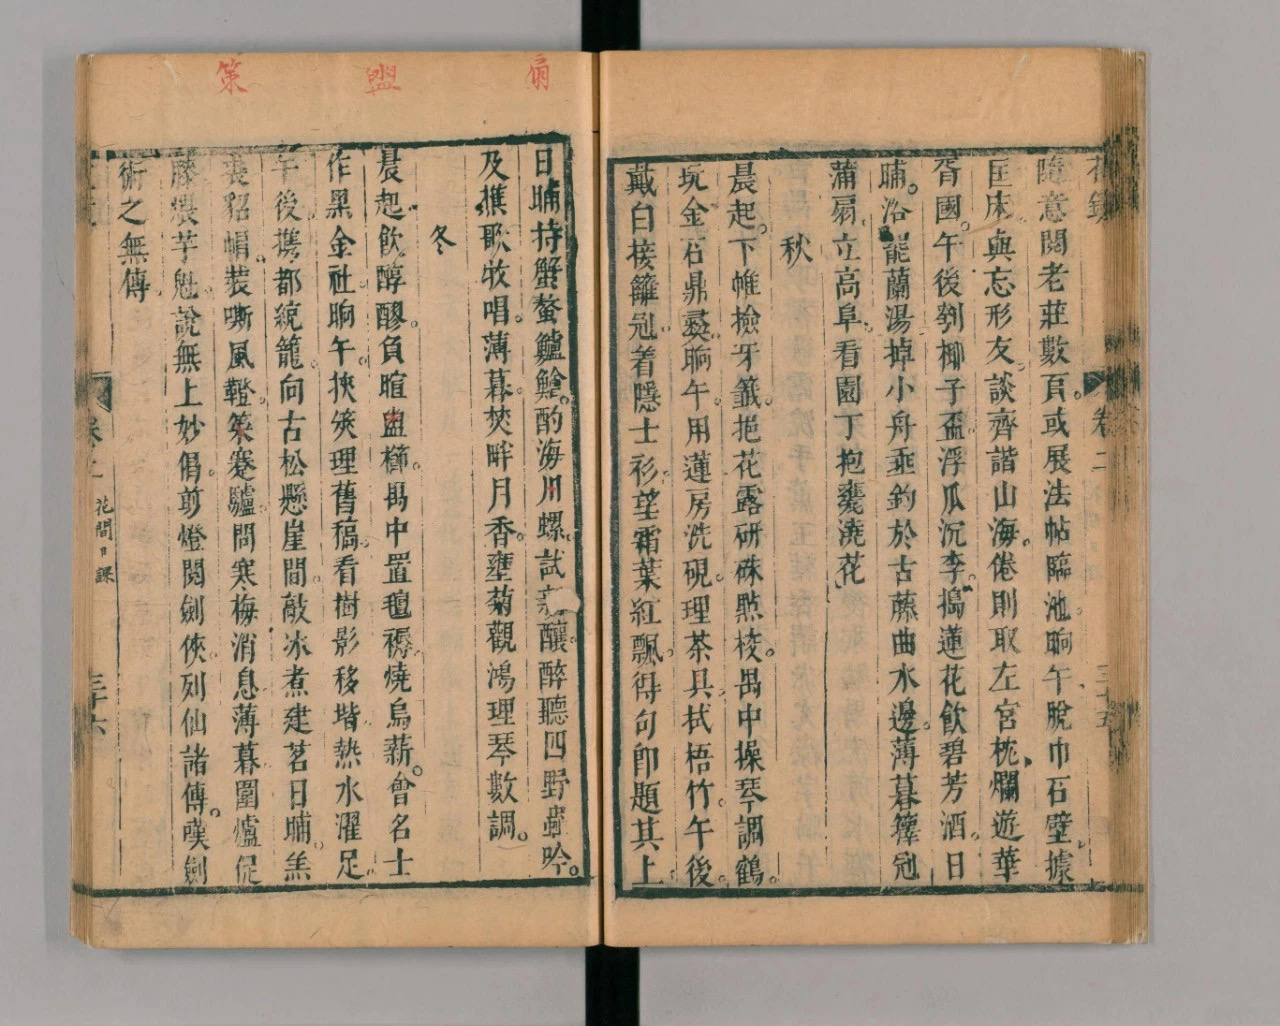 花鏡
卷二
三十五
隨意閱老莊數頁。或展法帖臨池。晌午脫巾石壁。據
匡床。與忘形友。談齊諧山海。倦則取左宮枕。爛遊華
胥國。午後刳椰子盃。浮瓜沉李。搗蓮花。飲碧芳酒。日
晡。浴罷蘭湯。棹小舟。垂釣於古藤曲水邊。薄暮籜冠
蒲扇。立高阜。看園丁抱甕澆花。
秋
晨起。下帷檢牙籤。挹花露研硃點校。禺中操琴調鶴。
玩金石鼎彝。晌午。用蓮房洗硯。理茶具。拭梧竹。午後。
戴白接䍦冠。着隱士衫。望霜葉紅飄。得句即題其上。
扇
盥
策
日晡持蟹螯鱸鱠。酌海川螺。試新釀。醉聽四野蟲吟。
及樵歌牧唱。薄暮。焚畔月香。壅菊觀鴻。理琴數調。
冬
晨起。飲醇醪。負暄盥櫛。禺中置氊褥。燒烏薪。會名士
作黑金社。晌午。挾筴理舊稿。看樹影移堦。熱水濯足。
午後。攜都統籠。向古松懸崖間。敲冰煮建茗。日晡。羔
裘貂帽。裝嘶風鐙。策蹇驢。問寒梅消息。薄暮圍爐促
膝。煨芋魁。說無上妙偈。剪燈閱劍俠。列仙諸傳。嘆劍
術之無傳
卷二
花間日課
三十六